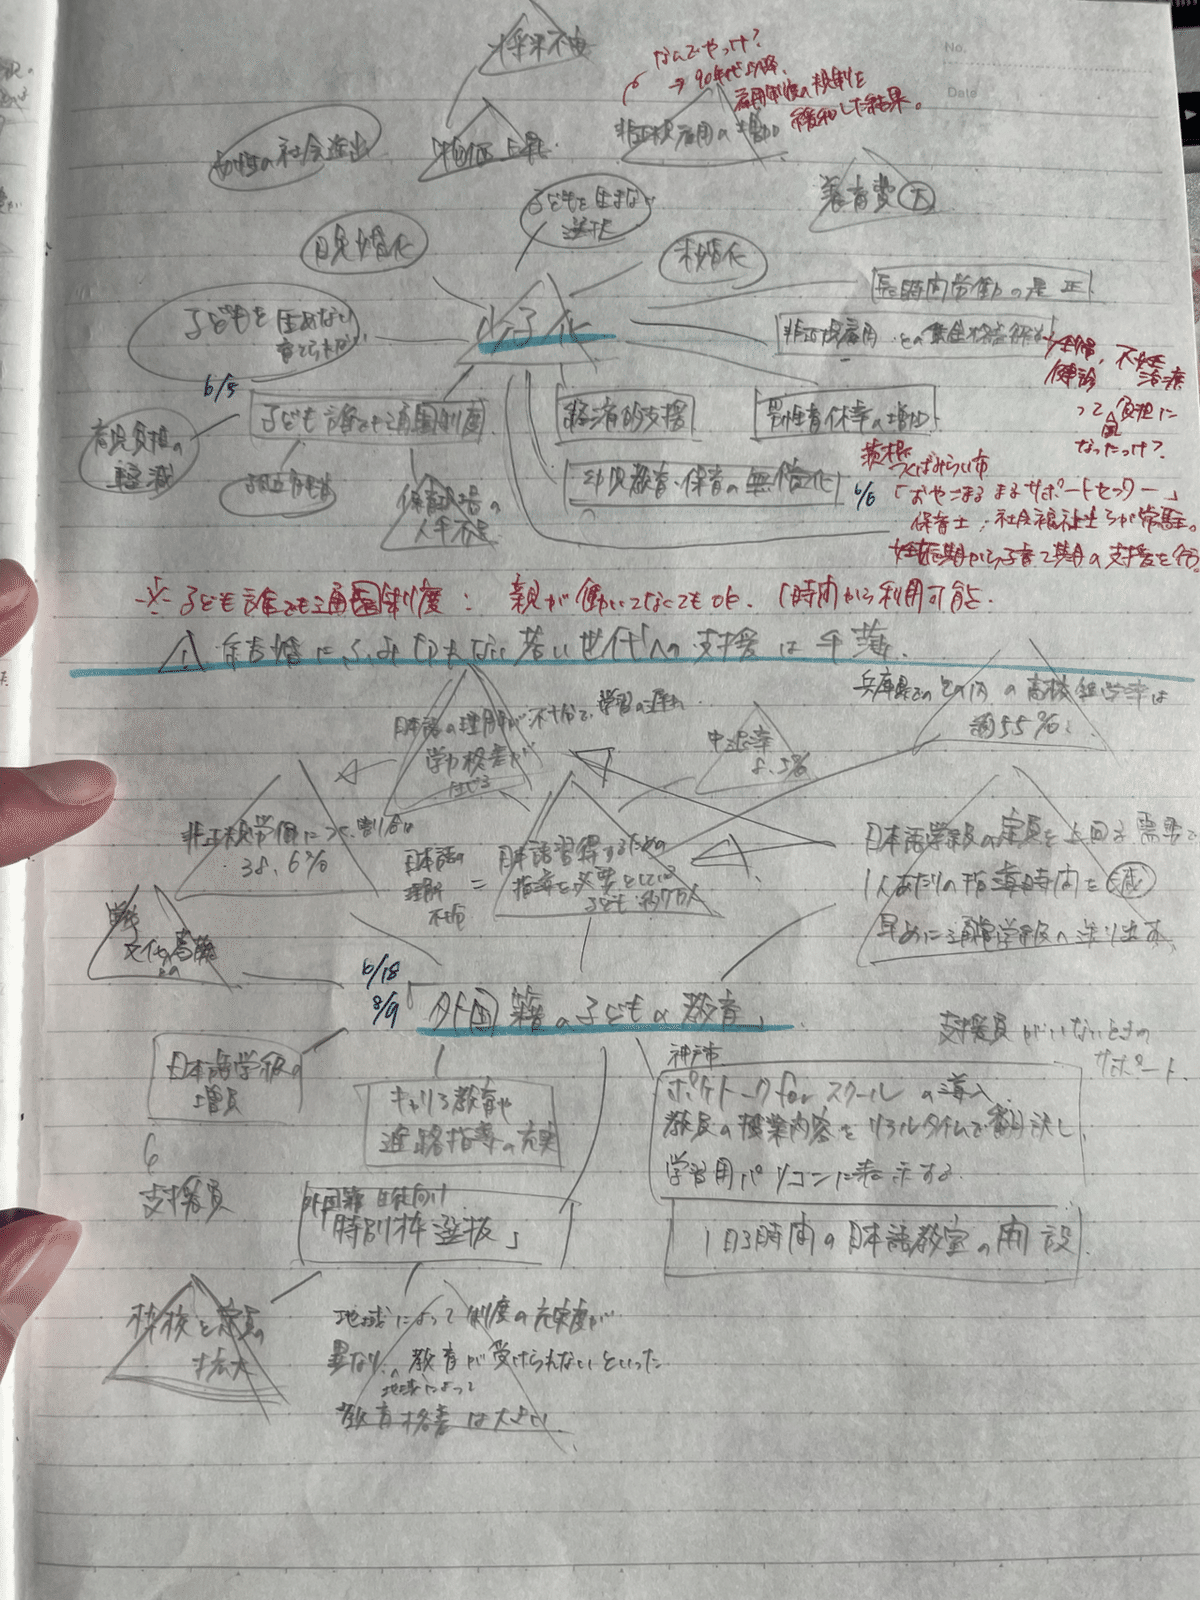 No.
Date
将来不安
なんでやっけ?
→90年代以降、
雇用制度の規制を
緩和した結果。
女性の社会進出
物価上昇
非正規雇用の増加
養育費 大
子どもを生まない
選択
晩婚化
未婚化
少子化
長時間労働の是正
子どもを生めない
育てられない
非正規雇用との賃金格差解消
妊婦健診、不妊治療
って負担に
なったっけ?
6/5
子ども誰でも通園制度
経済的支援
男性育休率の増加
育児負担の
軽減
保育現場の
人手不足
幼児教育・保育の無償化
茨城
つくばみらい市
6/6
「おやこまるまるサポートセンター」
保育士、社会福祉士らが常駐。
妊娠期から子育て期の支援を行う。
※子ども誰でも通園制度: 親が働いてなくてもOK. 1時間から利用可能.
⚠ 結婚にふみ切れない若い世代への支援は手薄.
兵庫県での
の高校進学率は
約55%.
日本語の理解が不十分で、学習の遅れ
学力格差が
生じる
中退率
8.5%
非正規労働につく割合は
38.6%
日本語の
理解
不足
=
日本語習得するための
指導を必要としている
子ども 約7万人
日本語学級の定員を上回る需要で
1人あたりの指導時間を 減
早めに通常学級へ送り出す.
文化の
6/18
8/9
「外国籍の子どもの教育」
支援員がいないときの
サポート
日本語学級の
増員
支援員
キャリア教育や
進路指導の充実
神戸市
ポケトーク for スクールの導入
教員の授業内容をリアルタイムで翻訳し、
学習用パソコンに表示する.
外国籍生徒向け
「特別枠選抜」
1日3時間の日本語教室の開設.
枠校と定員の
拡大
地域によって制度の充実度が
異なり、教育が受けられないといった
地域によって
教育格差は大きい.